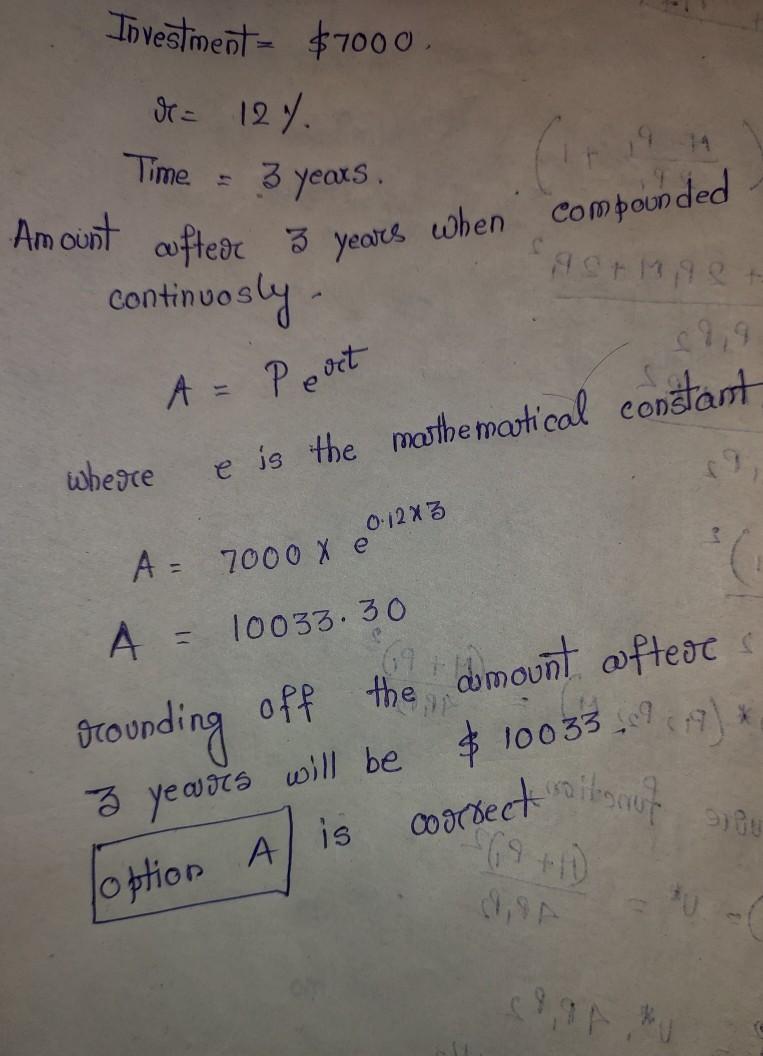 Investment = $7000.
r = 12 %.
Time = 3 years.
Amount after 3 years when compounded
continuosly.
A = P e^rt
where e is the mathematical constant
A = 7000 x e^0.12x3
A = 10033.30
rounding off the amount after
3 years will be $ 10033.
option A is correct